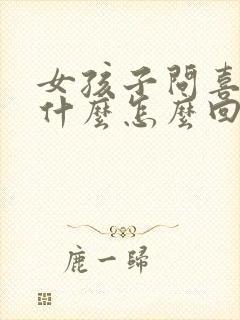 女孩子問喜
什麼怎麼回
鹿一歸